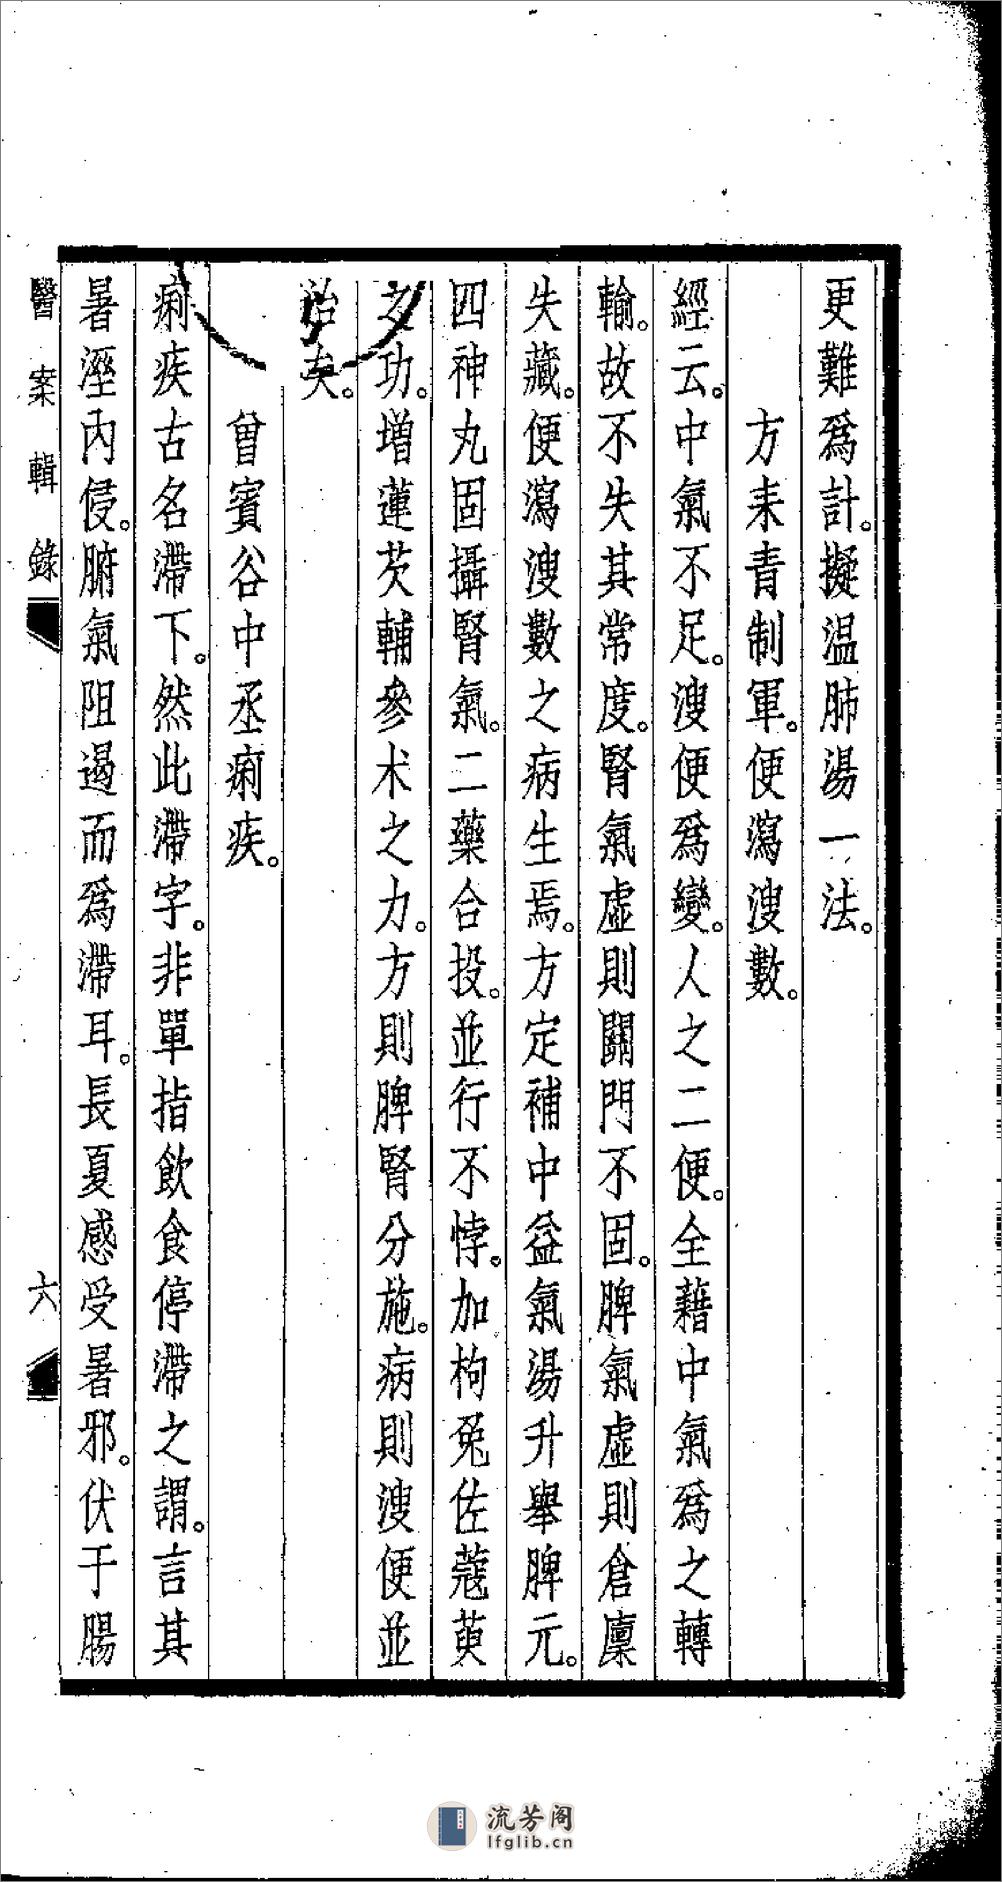 更難爲計。擬温肺湯一法。
方耒青制軍。便瀉溲數。
經云。中氣不足。溲便爲變。人之二便。全藉中氣爲之轉
輸。故不失其常度。腎氣虛則關門不固。脾氣虛則倉廩
失藏。便瀉溲數之病生焉。方定補中益氣湯升舉脾元。
四神丸固攝腎氣。二藥合投。並行不悖。加枸兔佐蔻萸
之功。增蓮芡輔參术之力。方則脾腎分施。病則溲便並
治矣。
曾賓谷中丞痢疾。
痢疾古名滯下。然此滯字。非單指飲食停滯之謂。言其
暑溼內侵。腑氣阻遏而爲滯耳。長夏感受暑邪。伏于腸
醫案輯錄
六
流芳阁
lfglib.cn